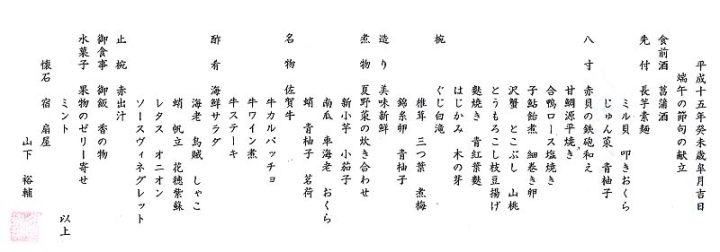 平成十五年癸未歳皐月吉日
端午の節句の献立
食前酒 菖蒲酒
先付 長芋素麺
ミル貝 叩きおくら
じゅん菜 青柚子
八寸 赤貝の鉄砲和え
甘鯛源平焼き
合鴨ロース塩焼き
子鮎飴煮 細巻き卵
沢蟹 とこぶし 山桃
とうもろこし枝豆揚げ
麩焼き 青紅葉麩
はじかみ 木の芽
椀 ぐじ白滝
椎茸 三つ葉 煮梅
錦糸卵 青柚子
造り 美味新鮮
煮物 夏野菜の炊き合わせ
新小芋 小茄子
南瓜 車海老 おくら
蛸 青柚子 茗荷
名物 佐賀牛
牛カルパッチョ
牛ワイン煮
牛ステーキ
酢肴 海鮮サラダ
海老 烏賊 しゃこ
蛸 帆立 花穂紫蘇
レタス オニオン
ソースヴィネグレット
止椀 赤出汁
御食事 御飯 香の物
水菓子 果物のゼリー寄せ
ミント
以上
懐石 宿 扇屋
山下 裕輔